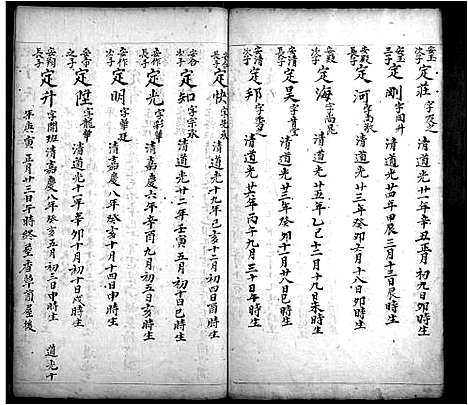 安玉次子 定莊 字 清道光廿一年辛丑正月初九日卯時生
定剛 字同升 清道光廿四年甲辰三月十三日辰時生
安毅長子 定河 字高 清道光廿三年癸卯六月十八日卯時生
安毅次子 定海 字尚崑 清道光廿五年乙巳十二月十九日未時生
安清長子 定昊 字 清道光廿三年癸卯十一月廿八日巳時生
安清次子 定邦 字 清道光廿六年丙午九月三十日午時生
定快 字 清道光十九年己亥十二月初四日酉時生
安谷次子 定知 字宗承 清道光廿二年壬寅五月初十日巳時生
安作長子 定光 字 清嘉慶六年辛酉九月初五日亥時生
安作次子 定明 字華廷 清嘉慶八年癸亥十月十四日申時生
之子 定陞 字龍華 清道光十一年辛卯十月初十日戌時生
長子 定升 字開班 清嘉慶八年癸亥五月初三日申時生 道光十
年庚寅正月廿三日午時終 屋後